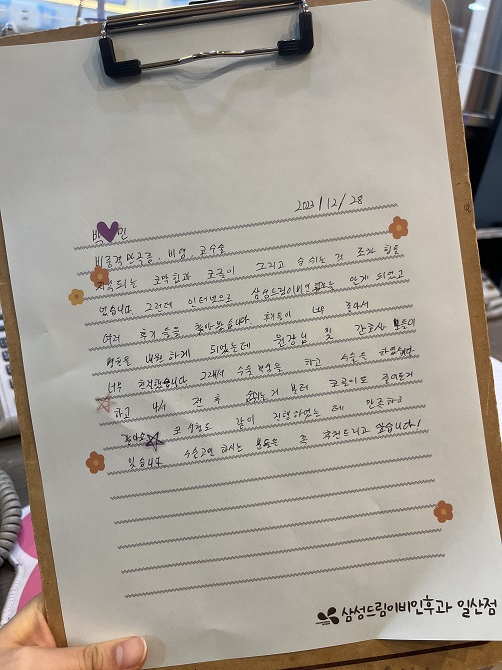 2023/12/28
백 민
비중격만곡증, 비염 코수술
지속되는 코막힘과 코골이 그리고 숨 쉬는 것 조차 힘들
었습니다 그런데 인터넷으로 삼성드림이비인후과는 알게 되었고
여러 후기 등을 찾아봤습니다. 후기들이 너무 좋아서
병원을 내원 하게 되었는데 원장님 및 간호사 분들이
너무 친절했습니다 그래서 수술 결심을 하고 수술을 하였습니다
하고 나서 전 후 숨쉬는거 부터 코골이도 줄어든거
같아요 코 성형도 같이 진행하였는데 만족하고
있습니다 수술고민 하시는 분들은 꼭 추천드리고 싶습니다!
삼성드림이비인후과 일산점